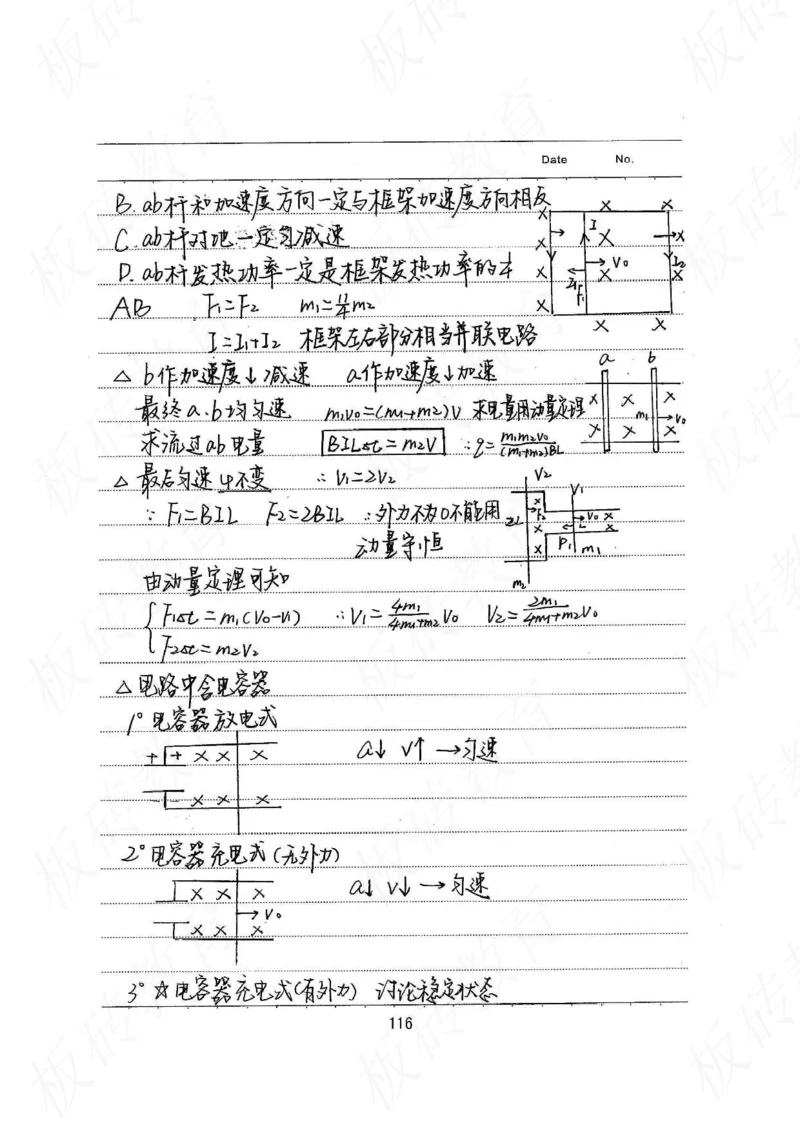 Date No.
B. ab杆和加速度方向一定与框架加速度方向相反
C. ab杆对地一定匀减速
D. ab杆发热功率一定是框架发热功率的
AB F₁=F₂ m₁= m₂
I=I₁+I₂ 框架左右部分相当并联电路
△ b作加速度↓减速 a作加速度↓加速
最终a、b均匀速 m₁v₀=(m₁+m₂)v 求电量用动量定理
求流过ab电量 BILΔt=m₂v ∴q=m₁m₂v₀/(m₁+m₂)BL
△ 最后匀速 φ不变 ∴V₁=2V₂
∵F₁=BIL F₂=2BIL ∴外力不为0不能用
动量守恒
由动量定理可知
{F₁Δt=m₁(V₀-V₁) ∴V₁=4m₁/4m₁+m₂ V₀ V₂=2m₁/4m₁+m₂ V₀
F₂Δt=m₂V₂
△ 电路中含电容器
1° 电容器放电式
a↓ v↑ →匀速
2° 电容器充电式(无外力)
a↓ v↓ →匀速
V₀
3° ☆电容器充电式(有外力) 讨论稳定状态
116
板砖教育